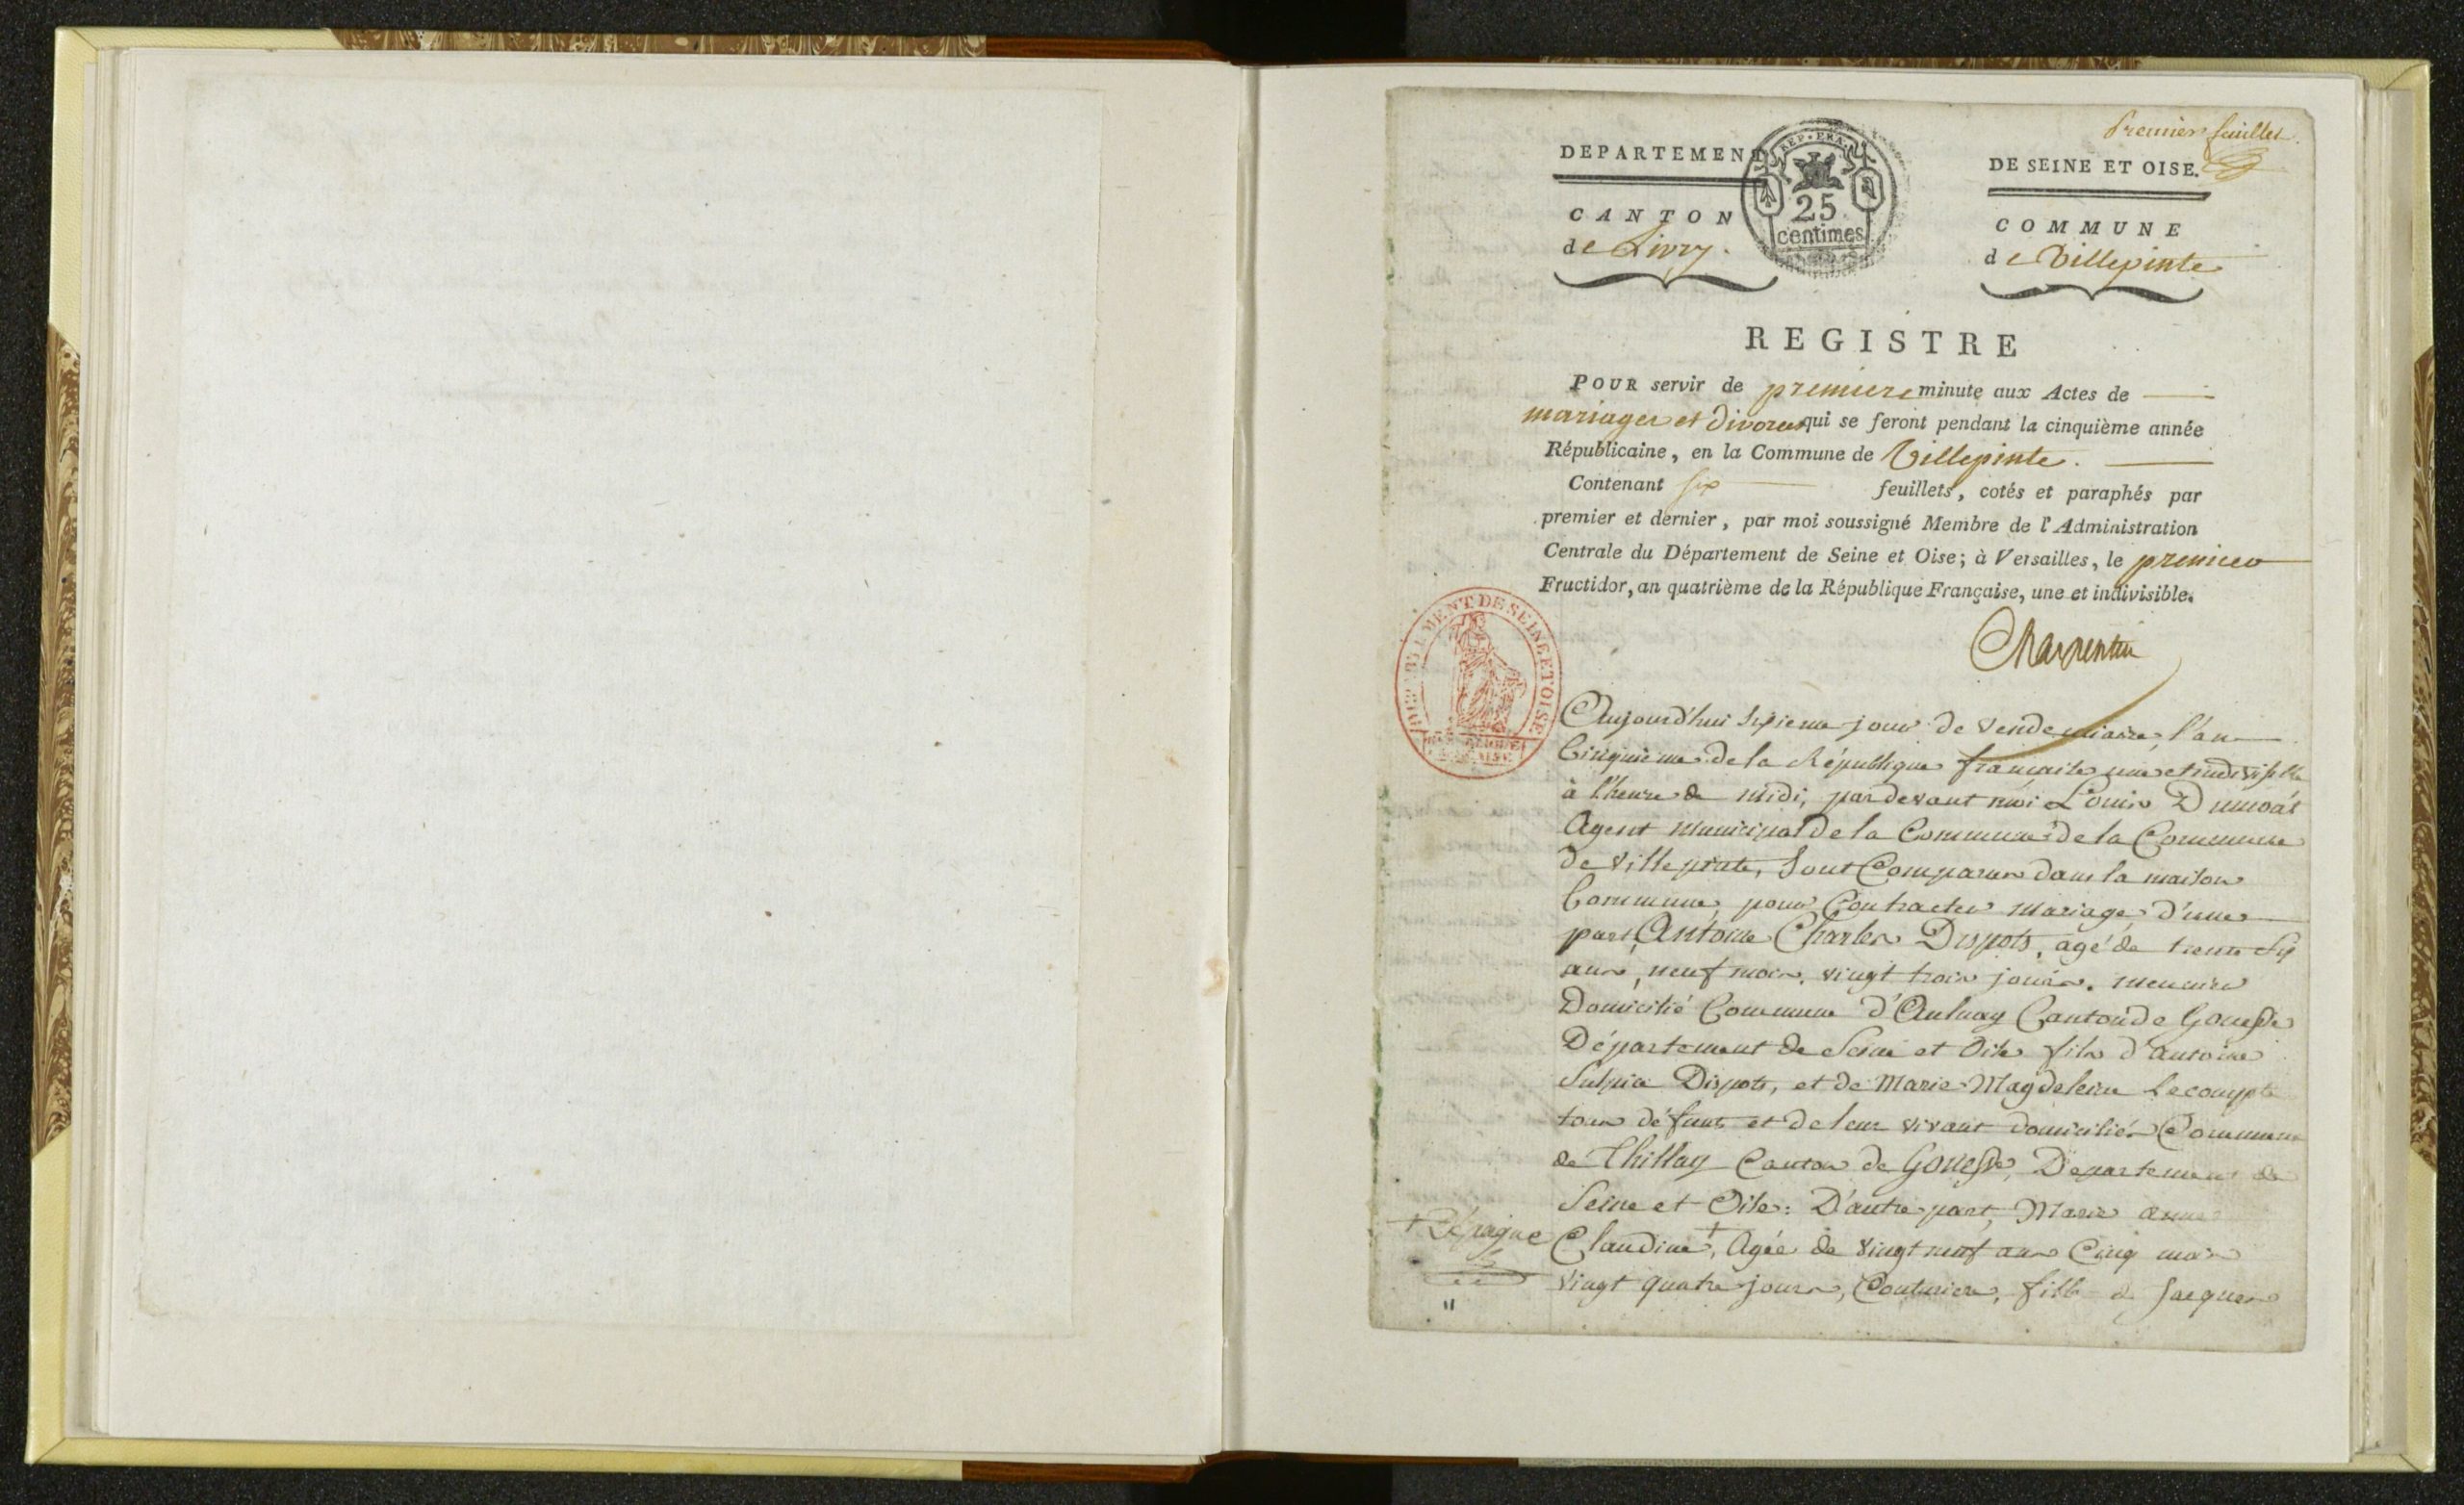 Premier feuillet.
DEPARTEMENT
DE SEINE ET OISE.
REP. FRA.
25
centimes
CANTON
de Livry.
COMMUNE
de Villepinte
REGISTRE
POUR servir de premiere minute aux Actes de
mariages et divorces qui se feront pendant la cinquième année
Républicaine, en la Commune de Villepinte.
Contenant six feuillets, cotés et paraphés par
premier et dernier, par moi soussigné Membre de l'Administration
Centrale du Département de Seine et Oise; à Versailles, le premier
Fructidor, an quatrième de la République Française, une et indivisible.
Charpentier
DEPARTEMENT DE SEINE ET OISE
Aujourd'hui jour de Vendemiaire, l'an
Cinquieme de la République française une et indivisible
à l'heure de midi, pardevant moi Louis
Agent municipal de la Commune de la Commune
de Villepinte, Sont Comparus dans la maison
Commune, pour Contracter mariage, d'une
part, Antoine Charles Dispots, agé de trente six
ans, neuf mois, vingt trois jours. meunier
Domicilié Commune d'Aulnay Canton de Gonesse
Département de Seine et Oise fils d'antoine
Sulpice Dispots, et de Marie Magdeleine Lecompte
tous défunts et de leur vivant domiciliés Commune
de Thillay Canton de Gonesse, Departement de
Seine et Oise: D'autre part, Marie anne
Claudine +, Agée de vingt neuf ans Cinq mois
+ Lépagne
vingt quatre jours, Couturiere, fille de Jacques